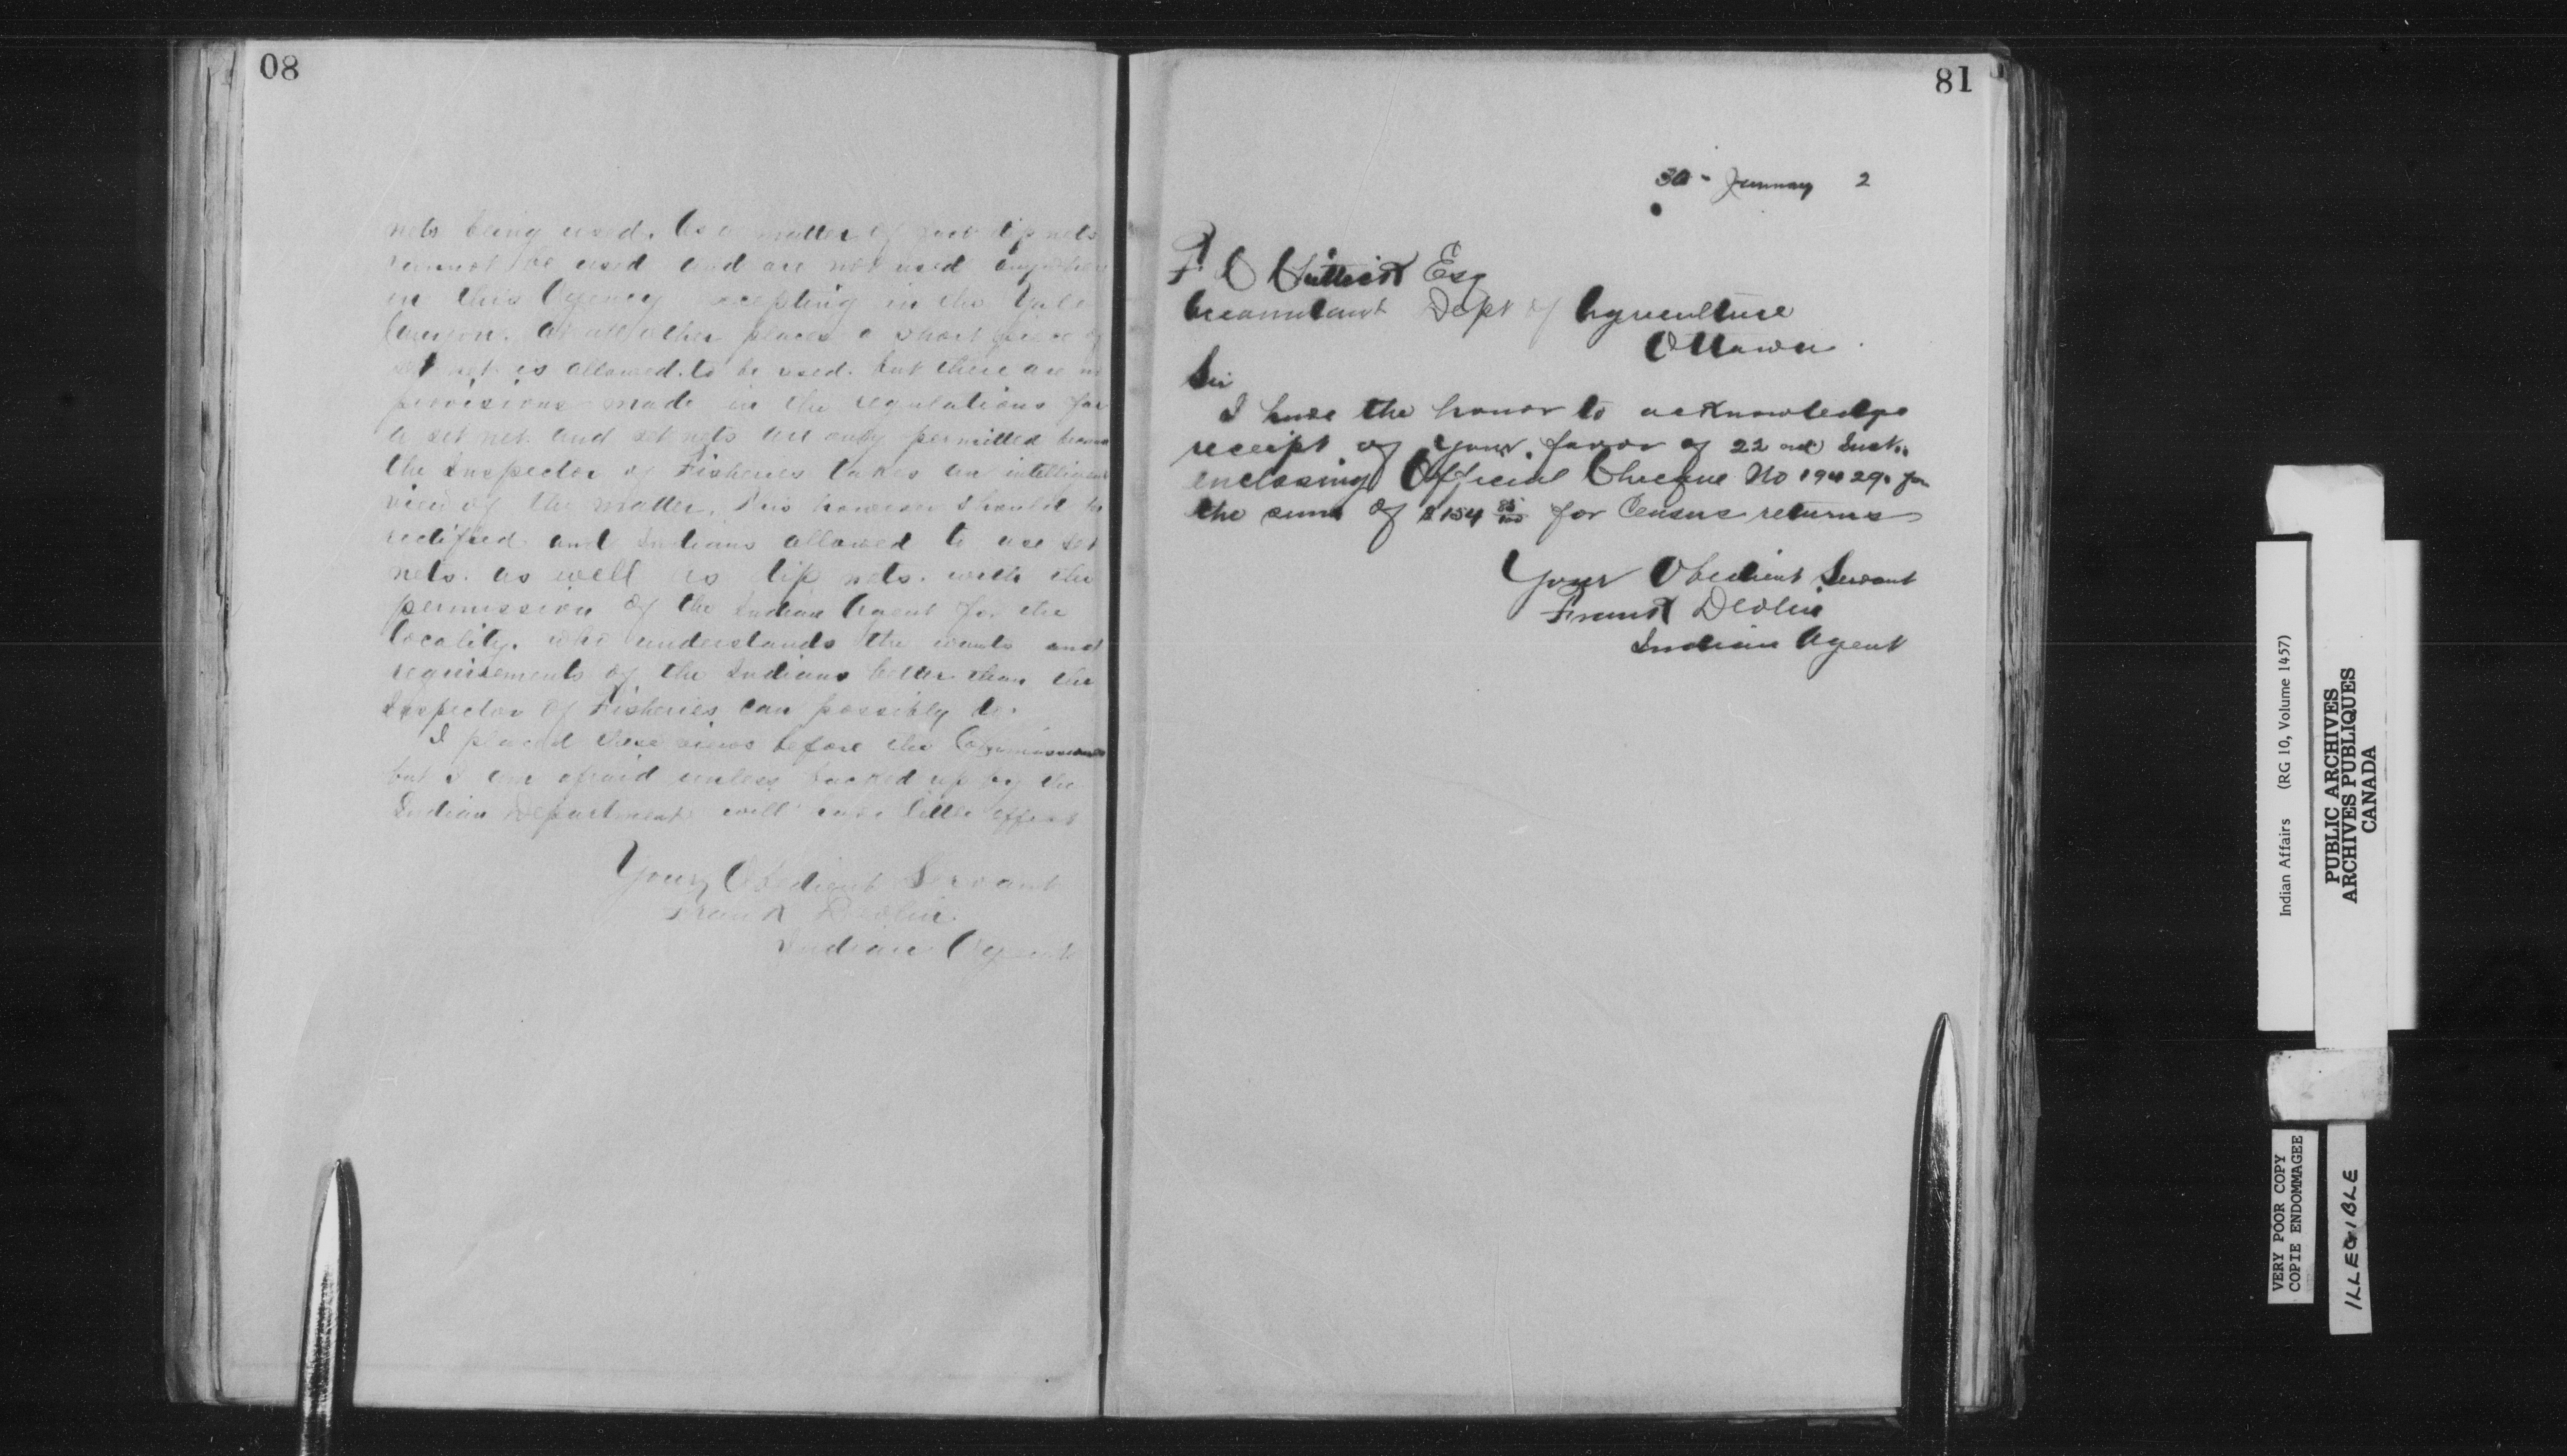 80
nets being used. As a matter of fact dip nets
cannot be used and are not used anywhere
in this Agency excepting in the Yale
Canyon. At all other places a short piece of
set net is allowed to be used. but there are no
provisions made in the regulations for
a set net and set nets are only permitted because
the Inspector of Fisheries takes an intelligent
view of the matter. This however should be
rectified and Indians allowed to use set
nets. as well as dip nets. with the
permission of the Indian Agent for the
locality. who understands the wants and
requirements of the Indians better than the
Inspector of Fisheries can possibly do.
I placed these views before the Commissioners
but I am afraid unless backed up by the
Indian Department will have little effect
Your Obedient Servant
Frank Devlin
Indian Agent
81
30 - January 2
Esq
Accountant Dept of Agriculture
Ottawa.
Sir
I have the honor to acknowledge
receipt of your favor of 22nd Inst.
enclosing Official Cheque No 19429. for
the sum of $154 85/100 for Census returns
Your Obedient Servant
Frank Devlin
Indian Agent
Indian Affairs (RG 10, Volume 1457)
PUBLIC ARCHIVES
ARCHIVES PUBLIQUES
CANADA
VERY POOR COPY
COPIE ENDOMMAGEE
ILLEGIBLE